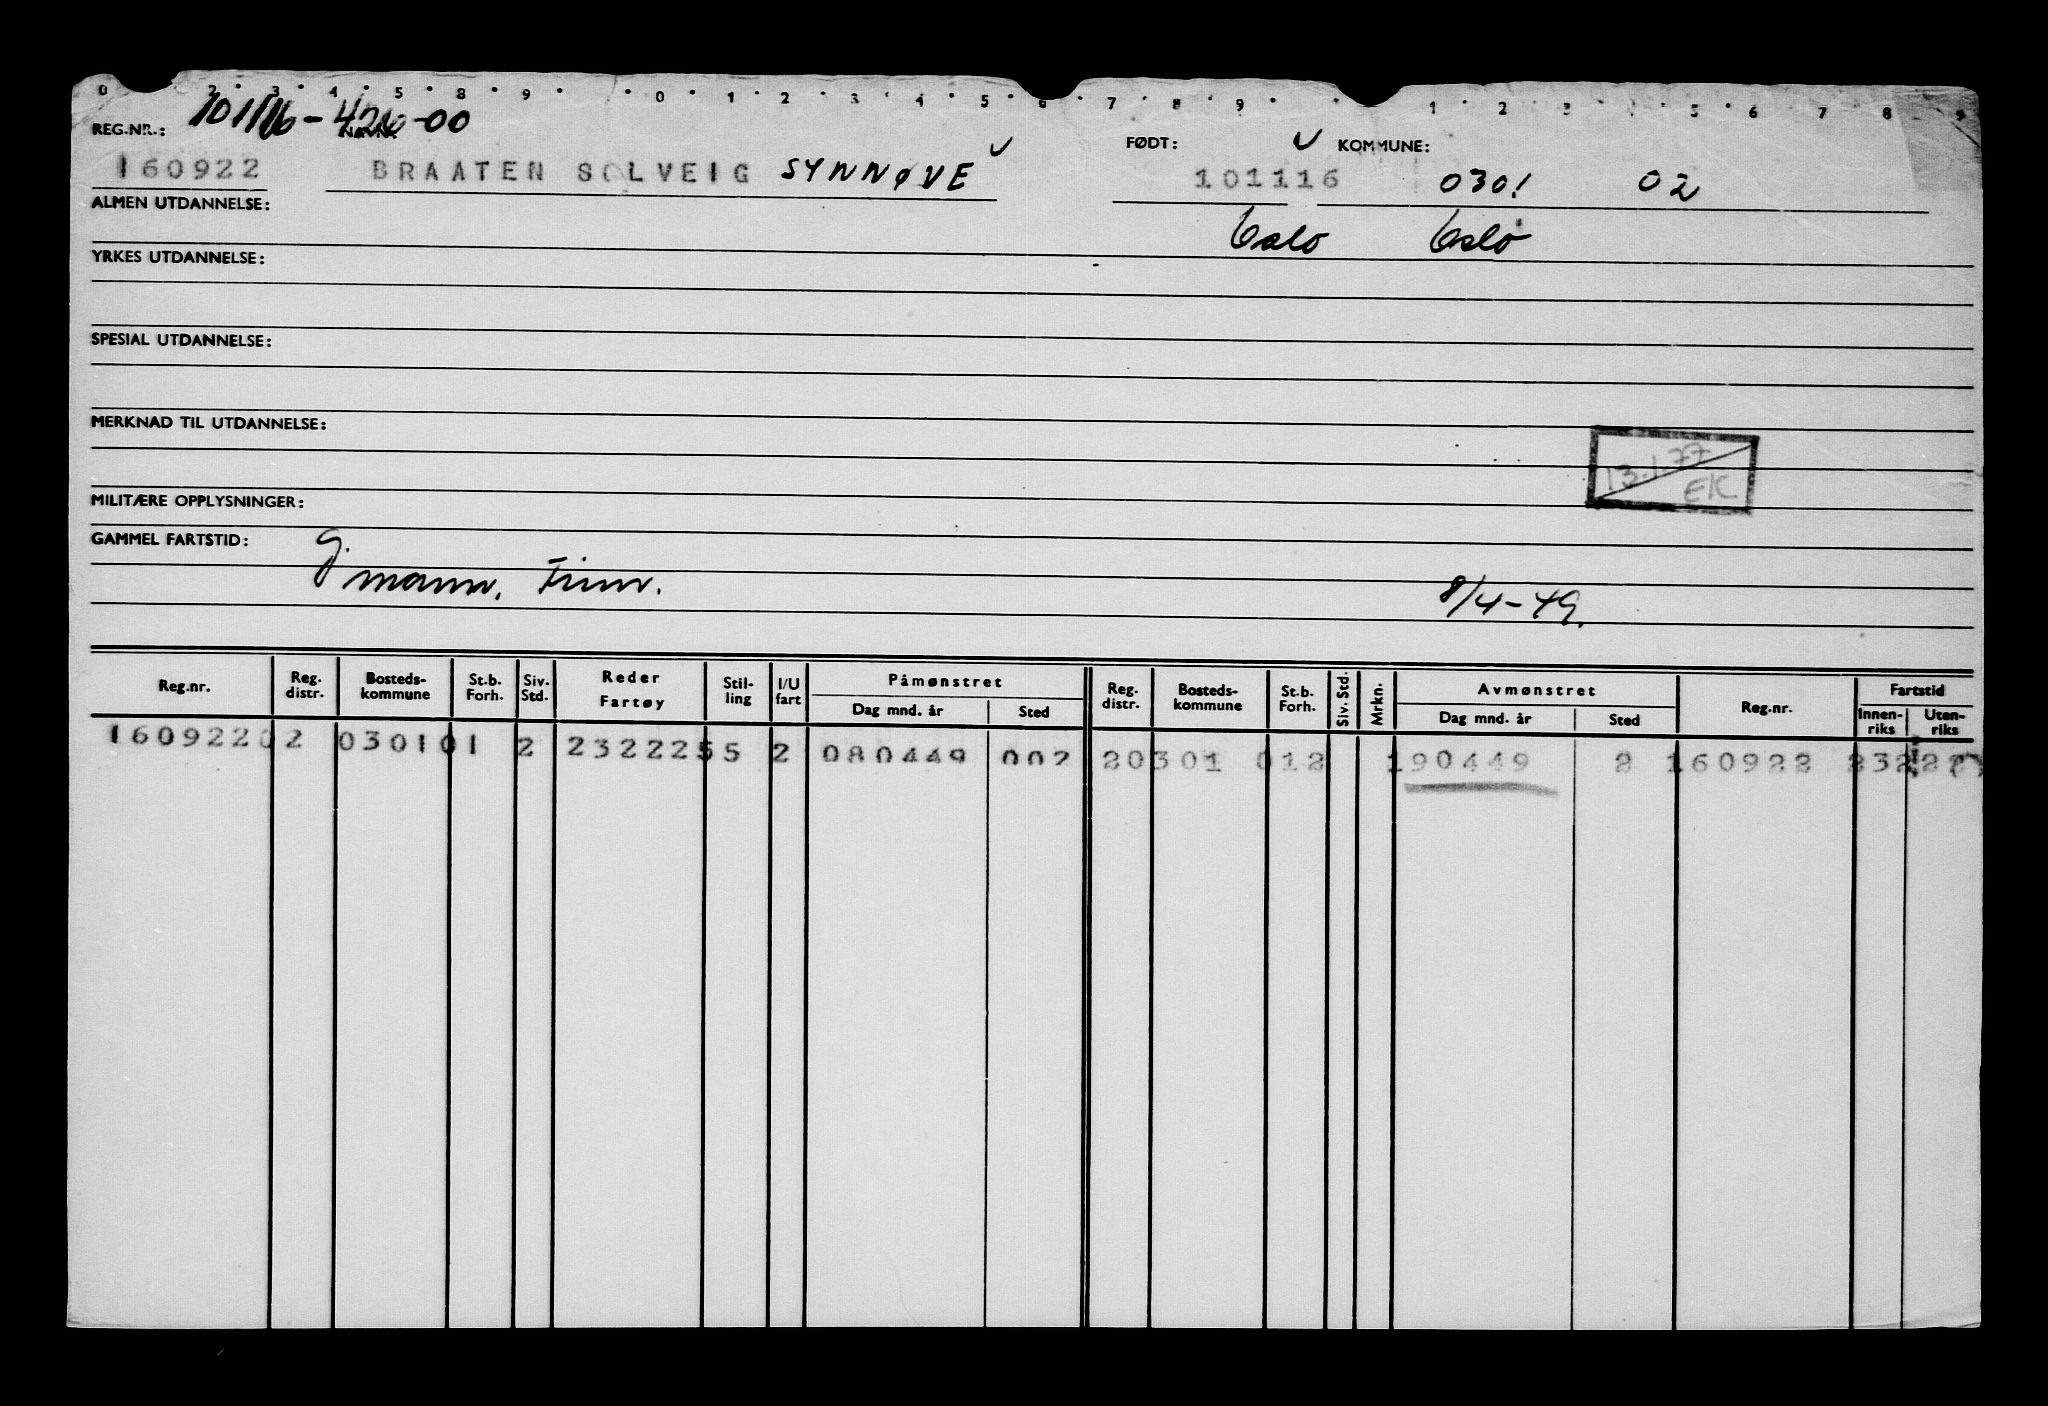 0 2 3 4 5 8 9 0 1 2 3 4 5 6 7 8 9 1 2 3 4 5 6 7 8 9
REG.NR.: 101116-426-00 NAVN: FØDT: KOMMUNE:
160922 BRAATEN SOLVEIG SYNNØVE 101116 0301 02
ALMEN UTDANNELSE: Oslo Oslo
YRKES UTDANNELSE:
SPESIAL UTDANNELSE:
MERKNAD TIL UTDANNELSE:
13.1.77
EK
MILITÆRE OPPLYSNINGER:
GAMMEL FARTSTID:
8/4-49.
Reg.nr. Reg. distr. Bosteds-kommune St.b. Forh. Siv. Std. Reder Fartøy Stil-ling I/U fart Påmønstret Dag mnd. år Sted Reg. distr. Bosteds-kommune St.b. Forh. Siv. Std. Mrkn. Avmønstret Dag mnd. år Sted Reg.nr. Fartstid Innen-riks Uten-riks
16092202 030101 2 2322255 2 080449 002 20301 012 190449 2 160922